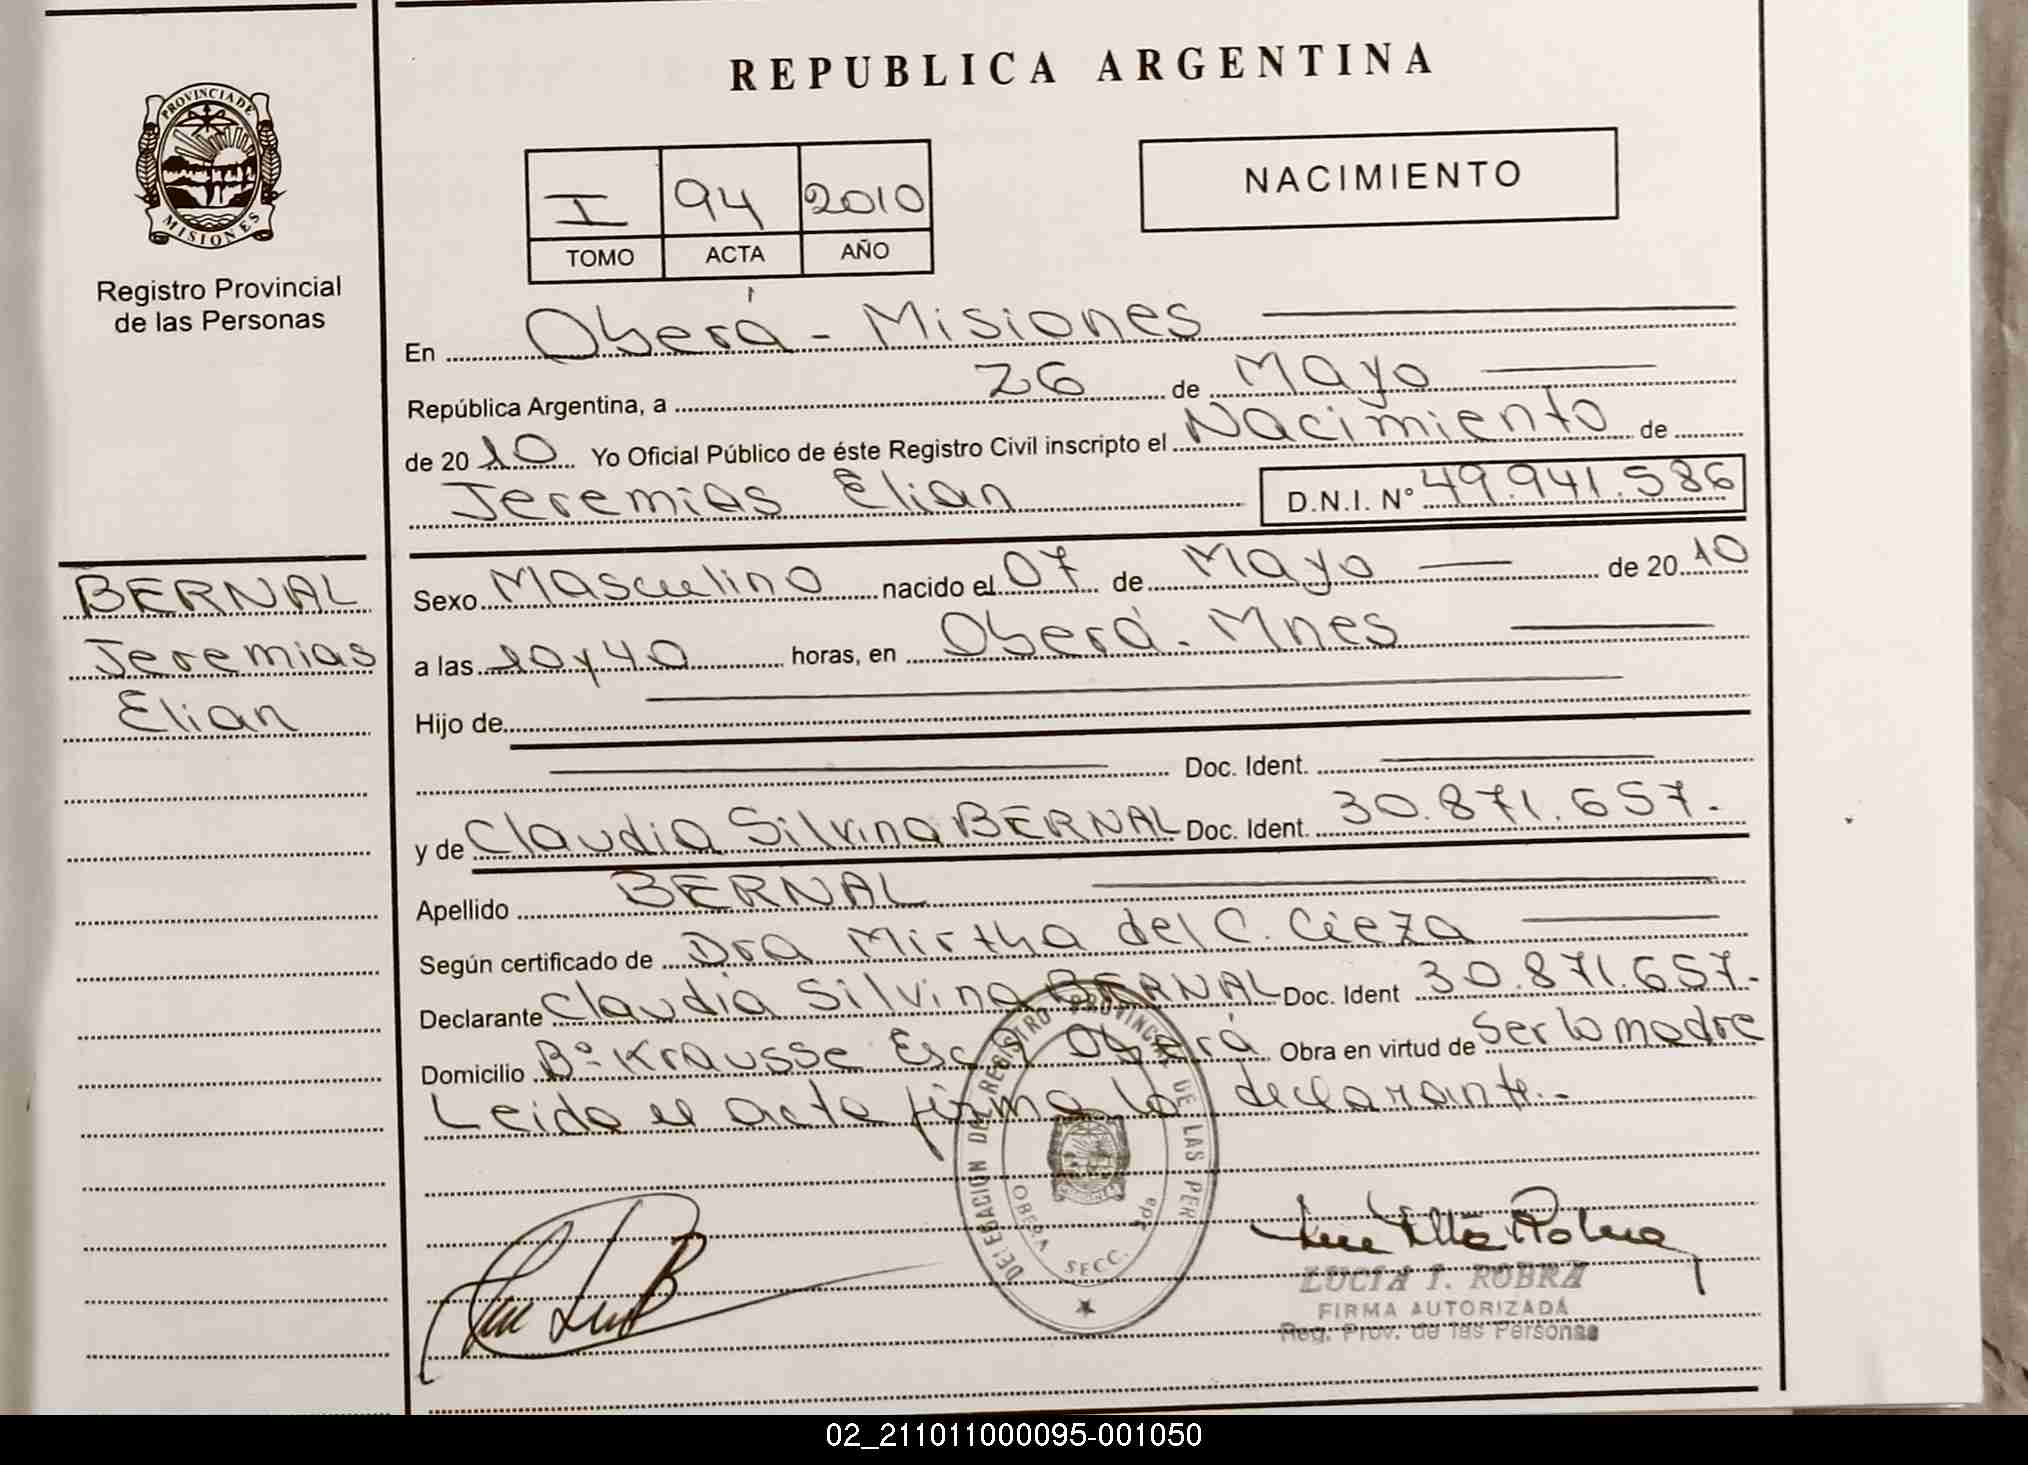 REPUBLICA ARGENTINA
PROVINCIA DE
MISIONES
Registro Provincial
de las Personas
I 94 2010
TOMO ACTA AÑO
NACIMIENTO
En Oberá - Misiones
República Argentina, a 26 de Mayo
de 2010 Yo Oficial Público de éste Registro Civil inscripto el Nacimiento de
Jeremias Elian D.N.I. N° 49.941.586
BERNAL
Jeremias
Elian
Sexo Masculino nacido el 07 de Mayo de 2010
a las 10 y 40 horas, en Oberá - Mnes
Hijo de
Doc. Ident.
y de Claudia Silvina BERNAL Doc. Ident. 30.871.657.-
Apellido BERNAL
Según certificado de Dra Mirtha del C. Cieza
Declarante Claudia Silvina BERNAL Doc. Ident 30.871.657.-
Domicilio Bº Krausse Esc Oberá Obra en virtud de ser la madre
Leida el acta firma la declarante.-
DELEGACION DEL REGISTRO PROVINCIAL DE LAS PER
OBERA SECC. 2da
LUCIA I. ROBRA
FIRMA AUTORIZADA
Reg. Prov. de las Personas
02_211011000095-001050